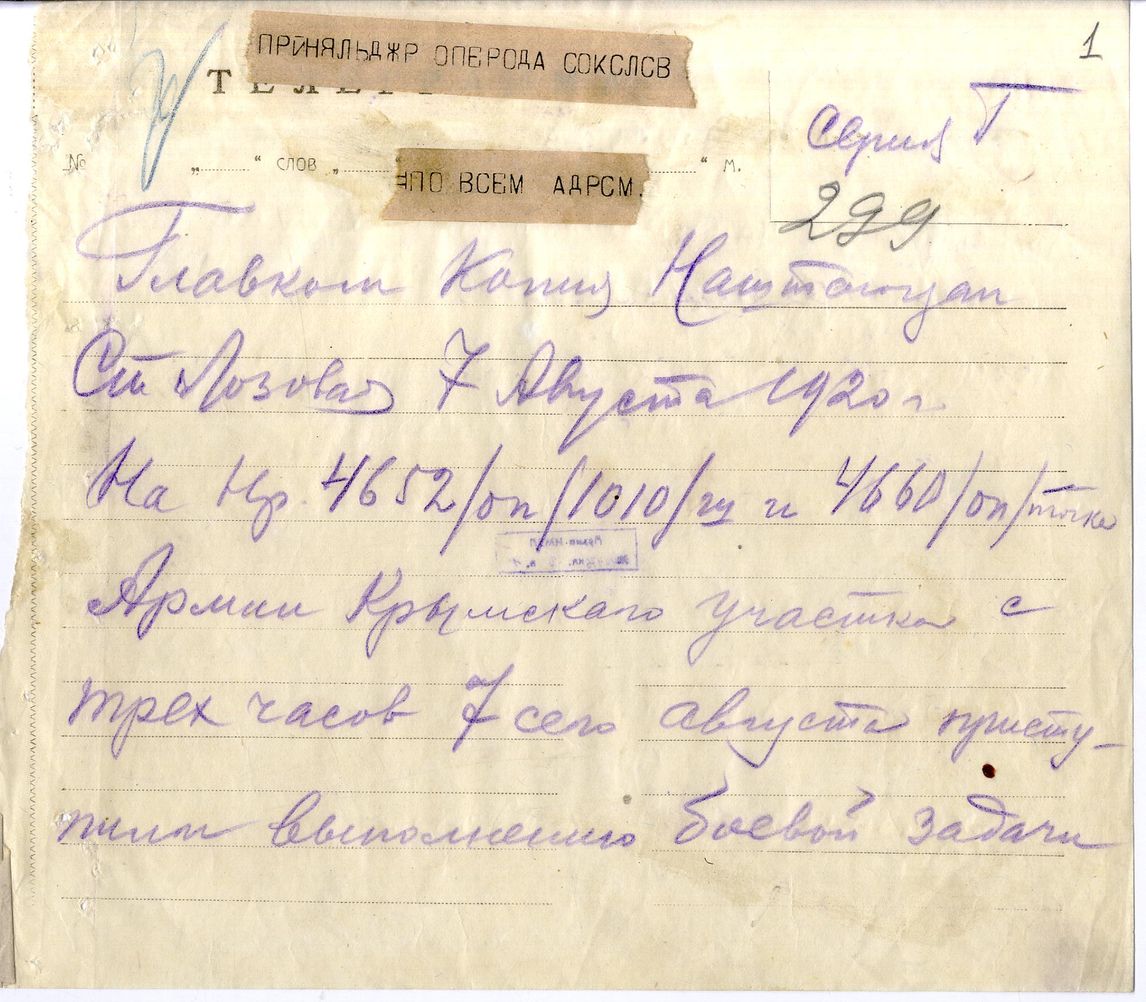 1
ПРИНЯЛЬДЖР ОПЕРОДА СОКСЛСВ
ТЕЛЕГР
Серия Г
№ „ “ СЛОВ „ “ М.
=ПО ВСЕМ АДРСМ.
299
Главком Копия Наштаюзап
Ст Лозовая 7 Августа 1920 г
На Нр 4652/оп/1010/гш и 4660/оп/точка
Армии Крымскаго участка с
трех часов 7 сего августа присту-
пили выполнению боевой задачи